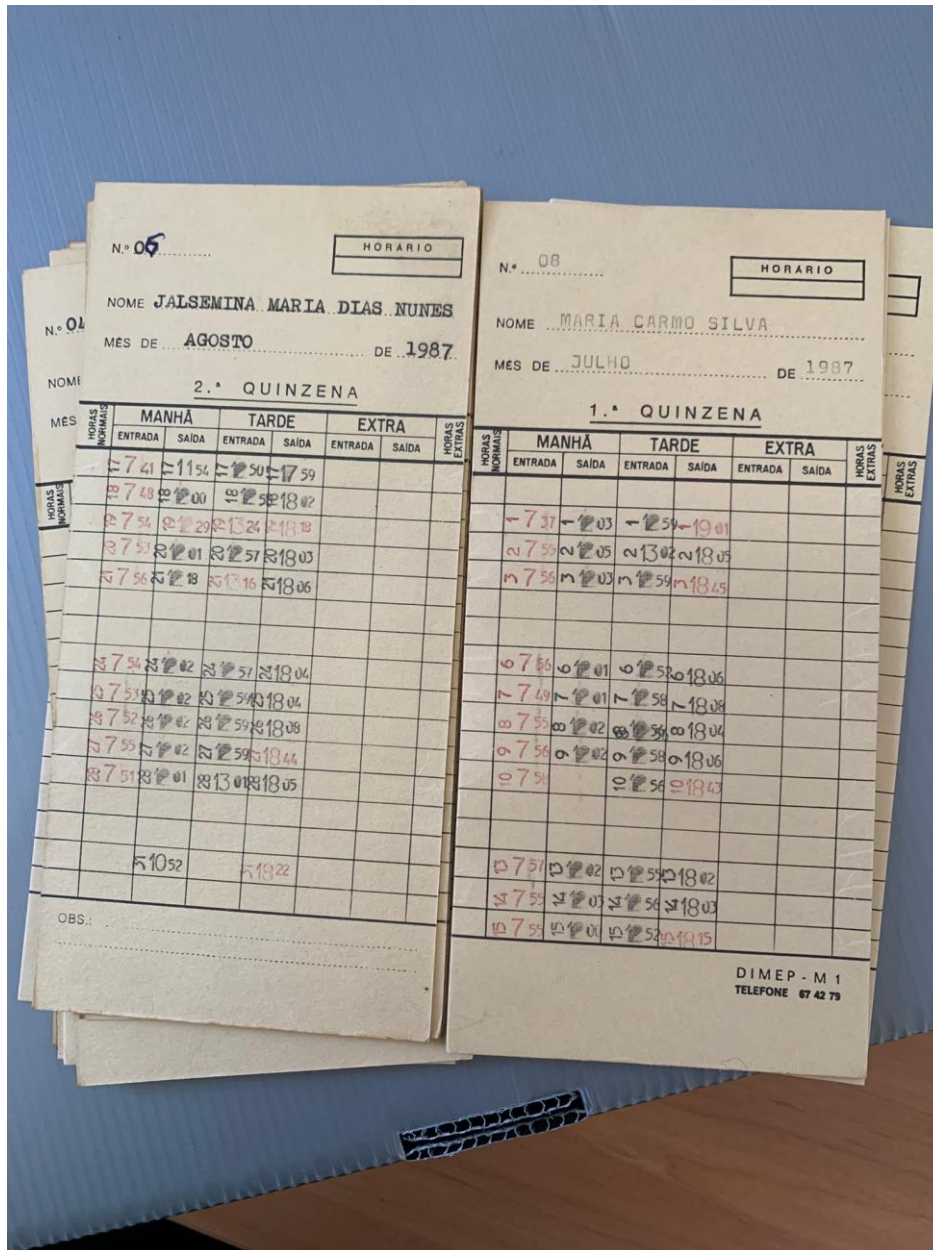 N.º 05
HORARIO
NOME JALSEMINA MARIA DIAS NUNES
MÊS DE AGOSTO DE 1987
2.ª QUINZENA
HORAS NORMAIS MANHÃ TARDE EXTRA HORAS EXTRAS
ENTRADA SAÍDA ENTRADA SAÍDA ENTRADA SAÍDA
17 7 41 17 11 54 17 12 50 17 17 59
18 7 48 18 12 00 18 12 58 18 18 02
19 7 54 19 12 29 19 13 24 19 18 18
20 7 53 20 12 01 20 12 57 20 18 03
21 7 56 21 12 18 21 13 16 21 18 06
24 7 54 24 12 02 24 12 57 24 18 04
25 7 53 25 12 02 25 12 59 25 18 04
26 7 52 26 12 02 26 12 59 26 18 08
27 7 55 27 12 02 27 12 59 27 18 44
28 7 51 28 12 01 28 13 01 28 18 05
31 10 52 31 18 22
OBS.:
N.º 08
HORARIO
NOME MARIA CARMO SILVA
MÊS DE JULHO DE 1987
1.ª QUINZENA
HORAS NORMAIS MANHÃ TARDE EXTRA HORAS EXTRAS
ENTRADA SAÍDA ENTRADA SAÍDA ENTRADA SAÍDA
1 7 37 1 12 03 1 12 59 1 19 01
2 7 55 2 12 05 2 13 02 2 18 05
3 7 56 3 12 03 3 12 59 3 18 45
6 7 56 6 12 01 6 12 58 6 18 06
7 7 49 7 12 01 7 12 58 7 18 08
8 7 55 8 12 02 8 12 56 8 18 04
9 7 56 9 12 02 9 12 58 9 18 06
10 7 56 10 12 56 10 18 43
13 7 57 13 12 02 13 12 55 13 18 02
14 7 55 14 12 03 14 12 56 14 18 03
15 7 55 15 12 15 12 52 15 18 15
DIMEP - M 1
TELEFONE 67 42 79
N.º 04
NOME
MÊS
HORAS NORMAIS
HORAS EXTRAS